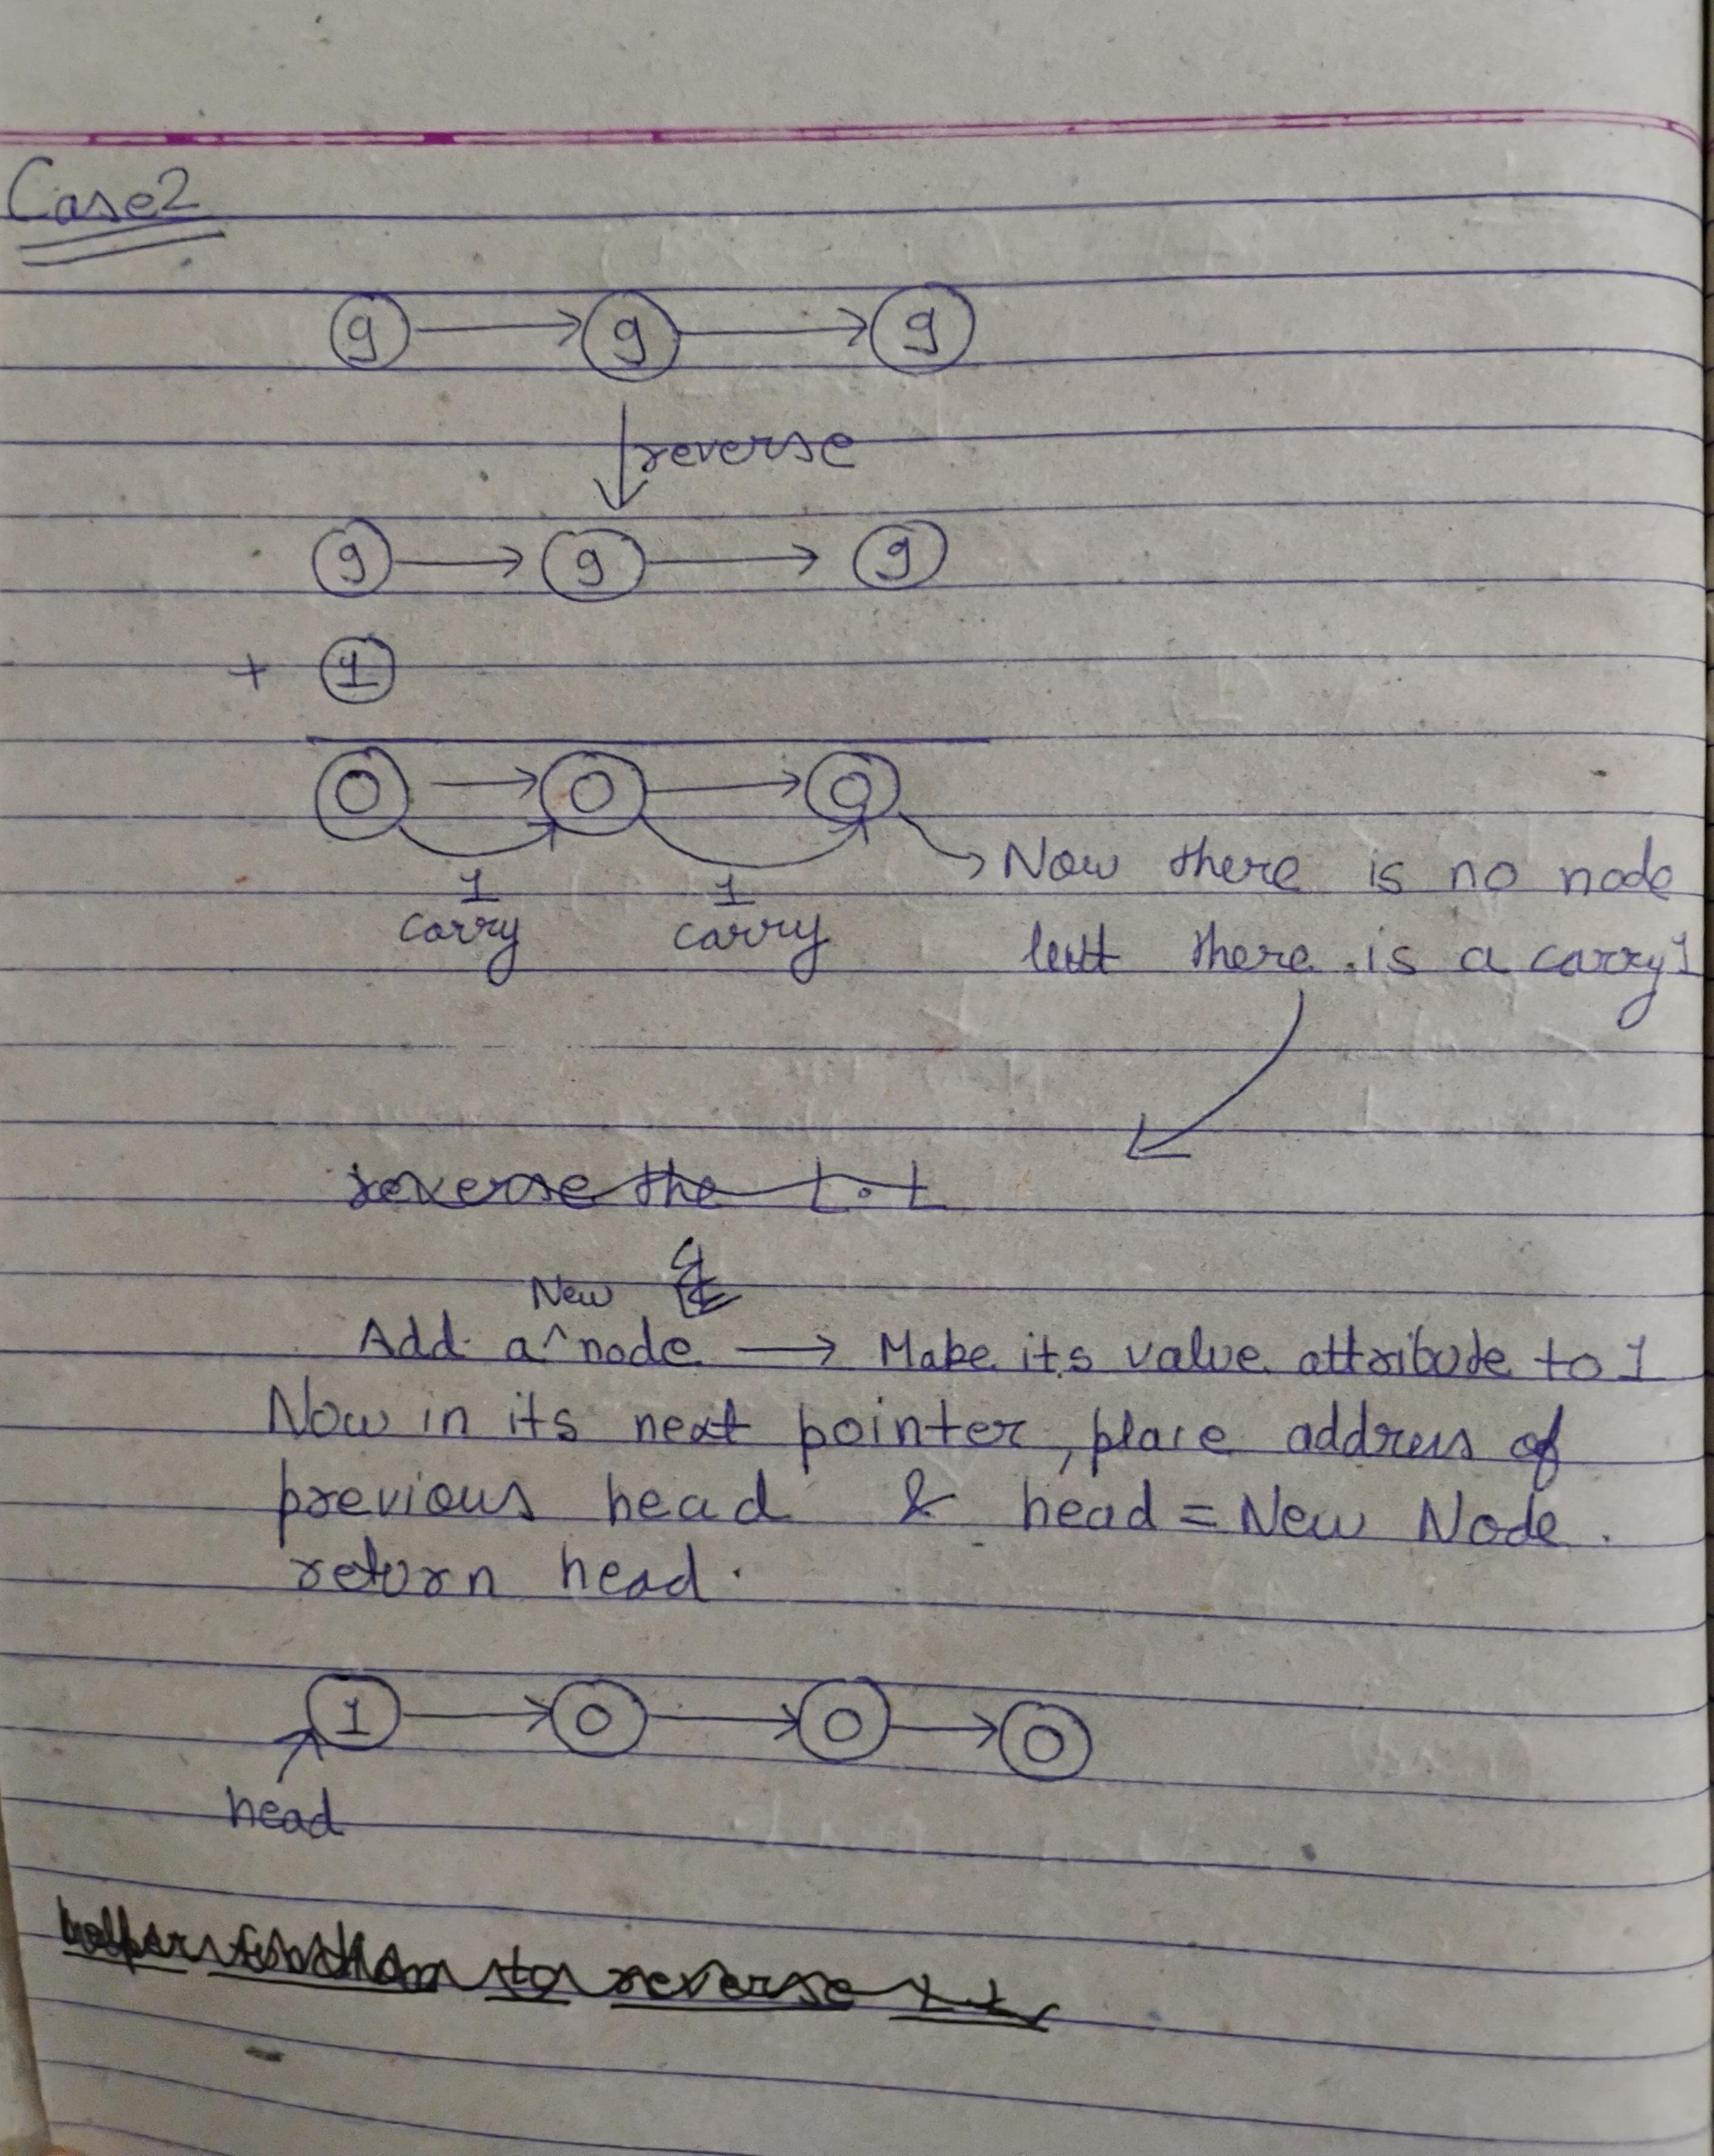 Case2
9 → 9 → 9
↓ reverse
9 → 9 → 9
+ 1
0 → 0 → 0
1 1
carry carry
→ Now there is no node
but there is a carry 1
reverse the L.L
New
Add a ^ node → Make its value attribute to 1
Now in its next pointer, place address of
previous head & head = New Node.
return head.
1 → 0 → 0 → 0
head
helper function to reverse L.L